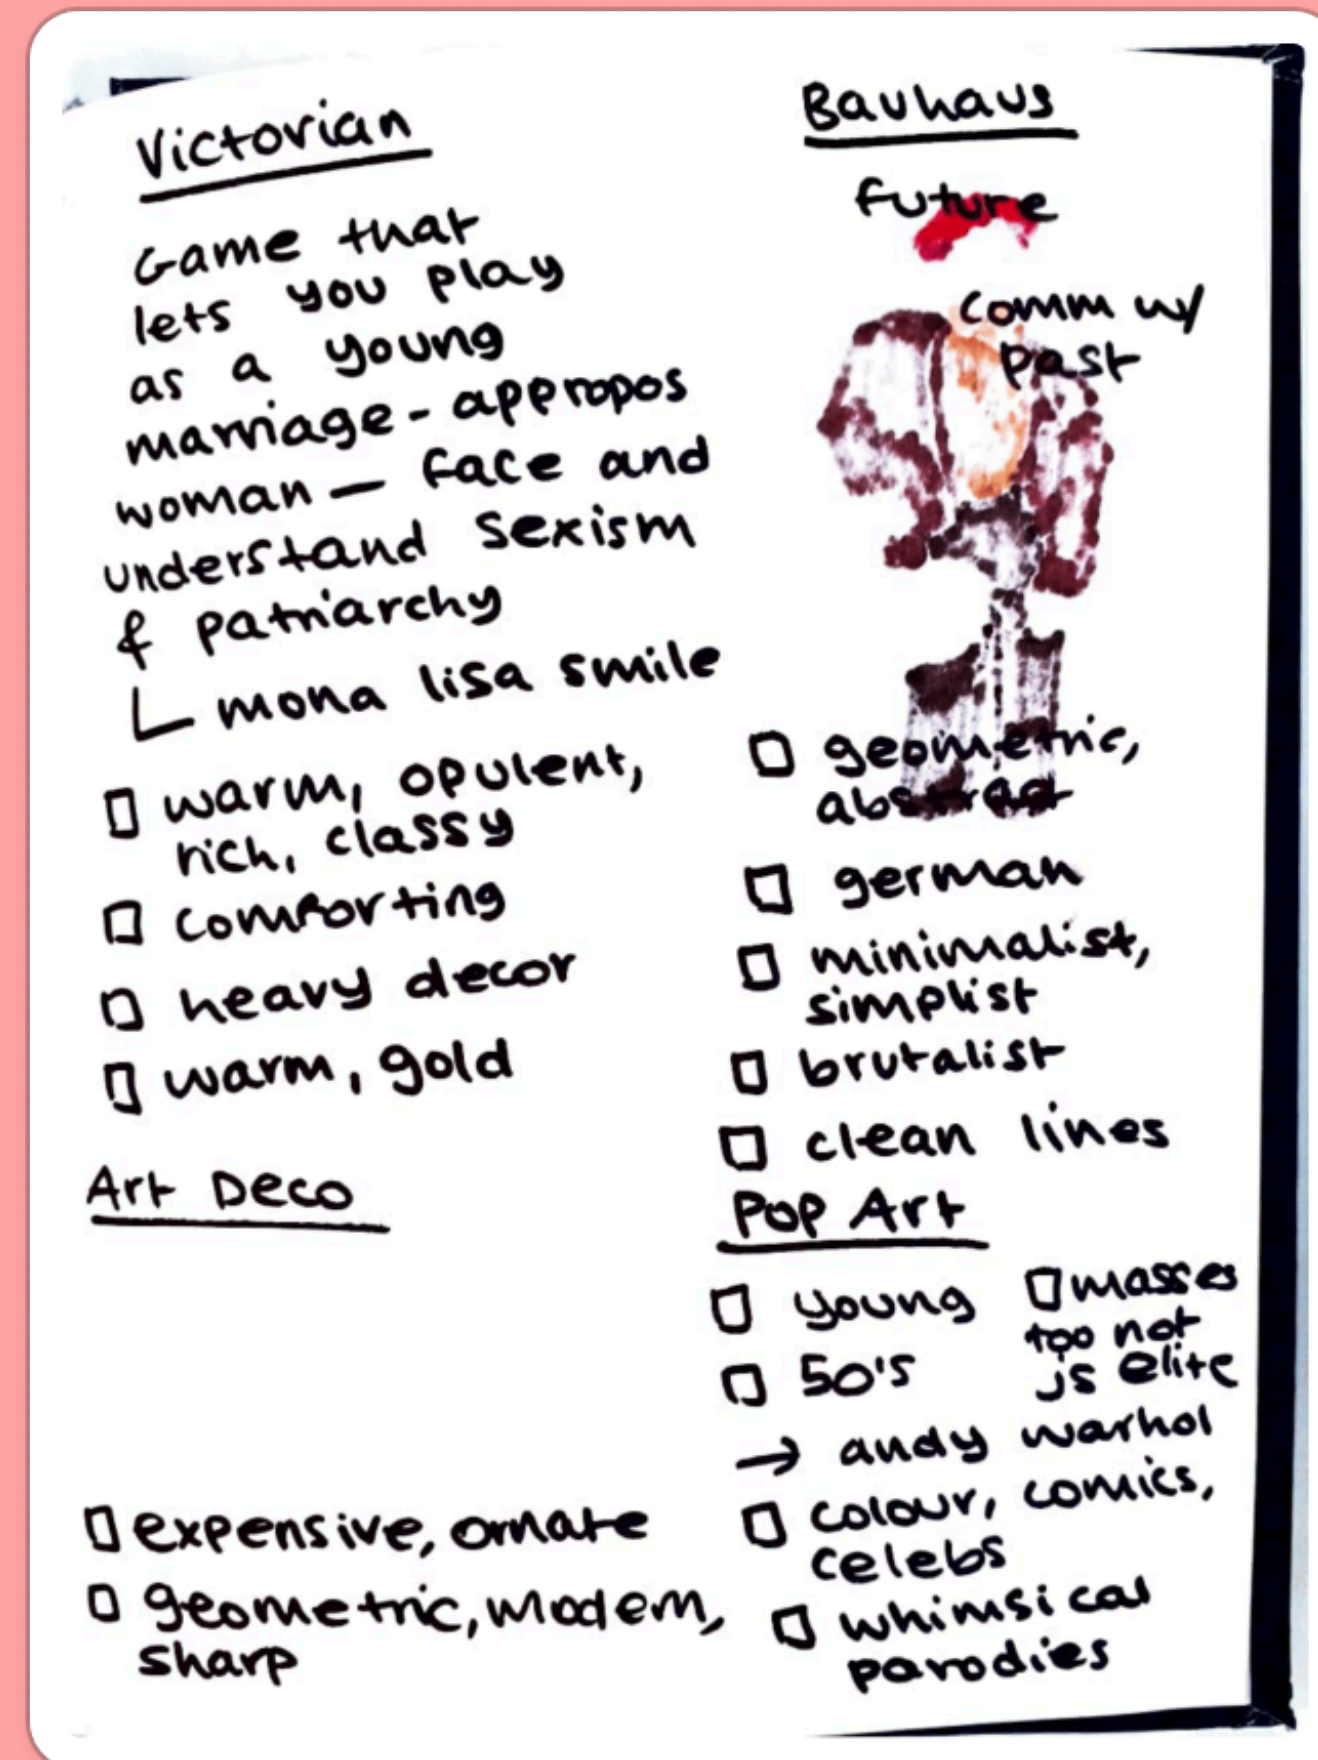 Victorian
Game that
lets you play
as a young
marriage-appropos
woman — face and
understand sexism
& patriarchy
mona lisa smile
☐ warm, opulent,
rich, classy
☐ comforting
☐ heavy decor
☐ warm, gold
Art Deco
☐ expensive, ornate
☐ geometric, modern,
sharp
Bauhaus
future
comm w/
past
☐ geometric,
abstract
☐ german
☐ minimalist,
simplist
☐ brutalist
☐ clean lines
Pop Art
☐ young
☐ 50's
☐ masses
too not
js elite
→ andy warhol
☐ colour, comics,
celebs
☐ whimsical
parodies